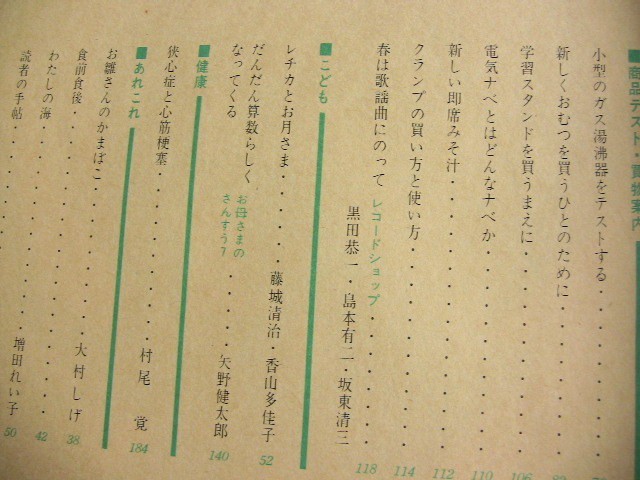 ■商品テスト・買物案内
小型のガス湯沸器をテストする
新しくおむつを買うひとのために
学習スタンドを買うまえに 106
電気ナベとはどんなナベか 110
新しい即席みそ汁 112
クランプの買い方と使い方 114
春は歌謡曲にのって レコードショップ 118
黒田恭一・島本有二・坂東清三
■こども
レチカとお月さま 藤城清治・香山多佳子 52
だんだん算数らしく
なってくる お母さまの
さんすう7 矢野健太郎 140
■健康
狭心症と心筋梗塞 村尾 覚 184
■あれこれ
お雛さんのかまぼこ 大村しげ 38
食前食後 42
わたしの海 増田れい子 50
読者の手帖